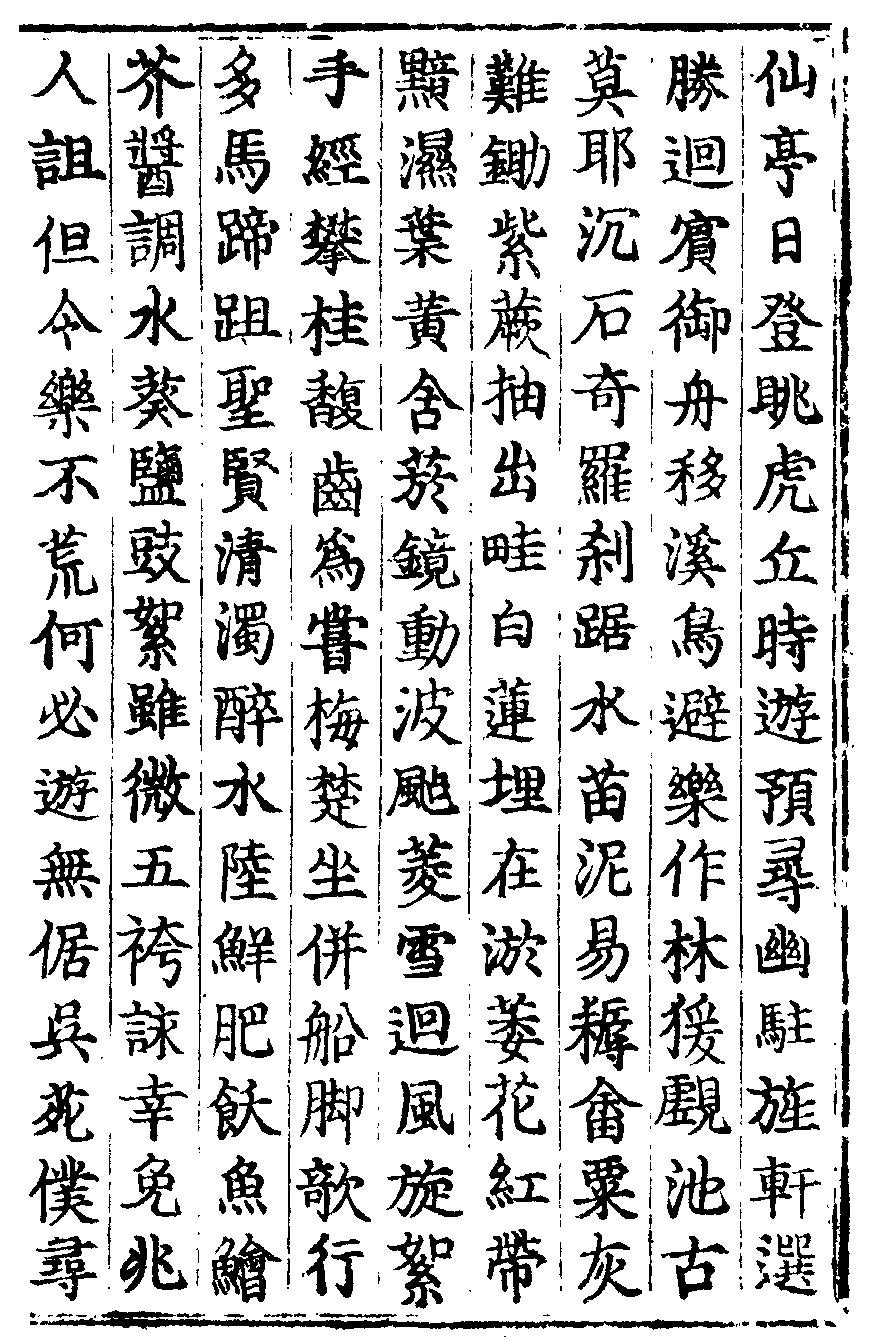 仙亭日登眺虎丘時遊預尋幽駐旌軒選
勝迴賓御舟移溪鳥避樂作林猨覰池古
莫耶沉石奇羅刹踞水苗泥易耨畬粟灰
難鋤紫蕨抽出畦白蓮埋在淤萎花紅帶
黯濕葉黃含菸鏡動波颭菱雪迴風旋絮
手經攀桂馥齒爲嘗梅楚坐併船脚欹行
多馬蹄跙聖賢清濁醉水陸鮮肥飫魚鱠
芥醬調水葵鹽豉絮雖微五袴詠幸免兆
人詛但令樂不荒何必遊無倨吳苑僕尋